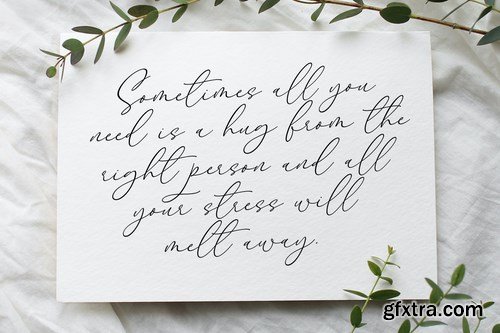 Sometimes all you
need is a hug from the
right person and all
your stress will
melt away.
gfxtra.com